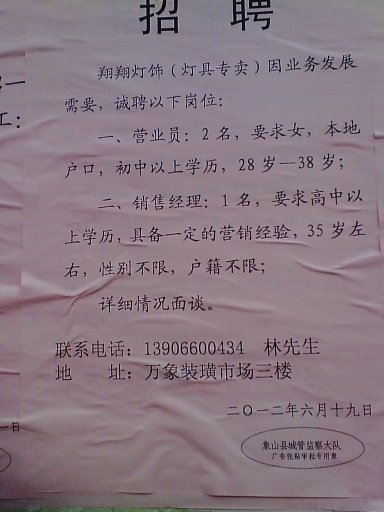 招 聘
翔翔灯饰（灯具专卖）因业务发展
需要，诚聘以下岗位：
一、营业员：2名，要求女，本地
户口，初中以上学历，28岁—38岁；
二、销售经理：1名，要求高中以
上学历，具备一定的营销经验，35岁左
右，性别不限，户籍不限；
详细情况面谈。
联系电话：13906600434 林先生
地 址：万象装璜市场三楼
二〇一二年六月十九日
象山县城管监察大队
广告张贴审批专用章
一
工：
一日